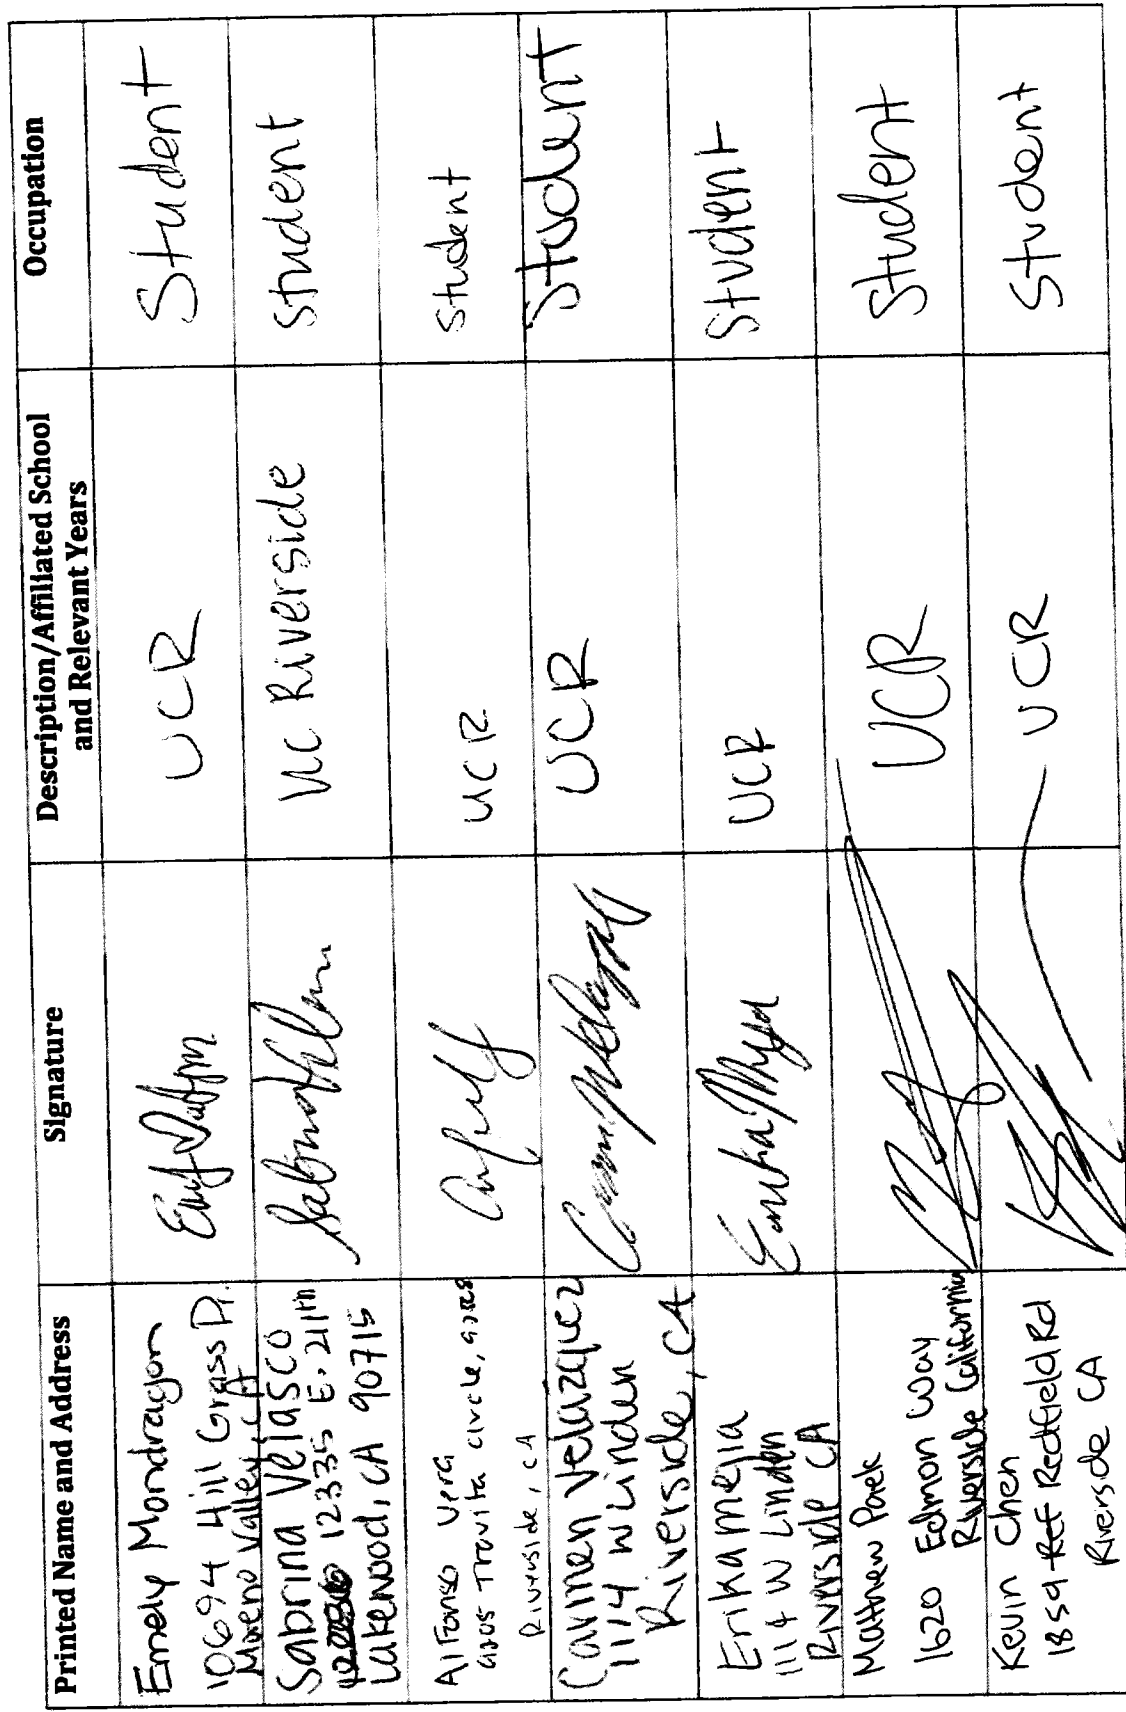 Printed Name and Address
Signature
Description/Affiliated School
and Relevant Years
Occupation
Emely Mondragon
10694 Hill Grass Dr.
Moreno Valley, CA
UCR
Student
Sabrina Velasco
12335 E. 211th
Lakewood, CA 90715
UC Riverside
Student
Alfonso Vera
Travita circle,
Riverside, CA
UCR
Student
Carmen Velazquez
1114 W Linden
Riverside, CA
UCR
Student
Erika mejia
1114 W Linden
Riverside CA
UCR
Student
Matthew Park
1620 Edmon Way
Riverside California
UCR
Student
Kevin Chen
1859 Redfield Rd
Riverside CA
UCR
Student